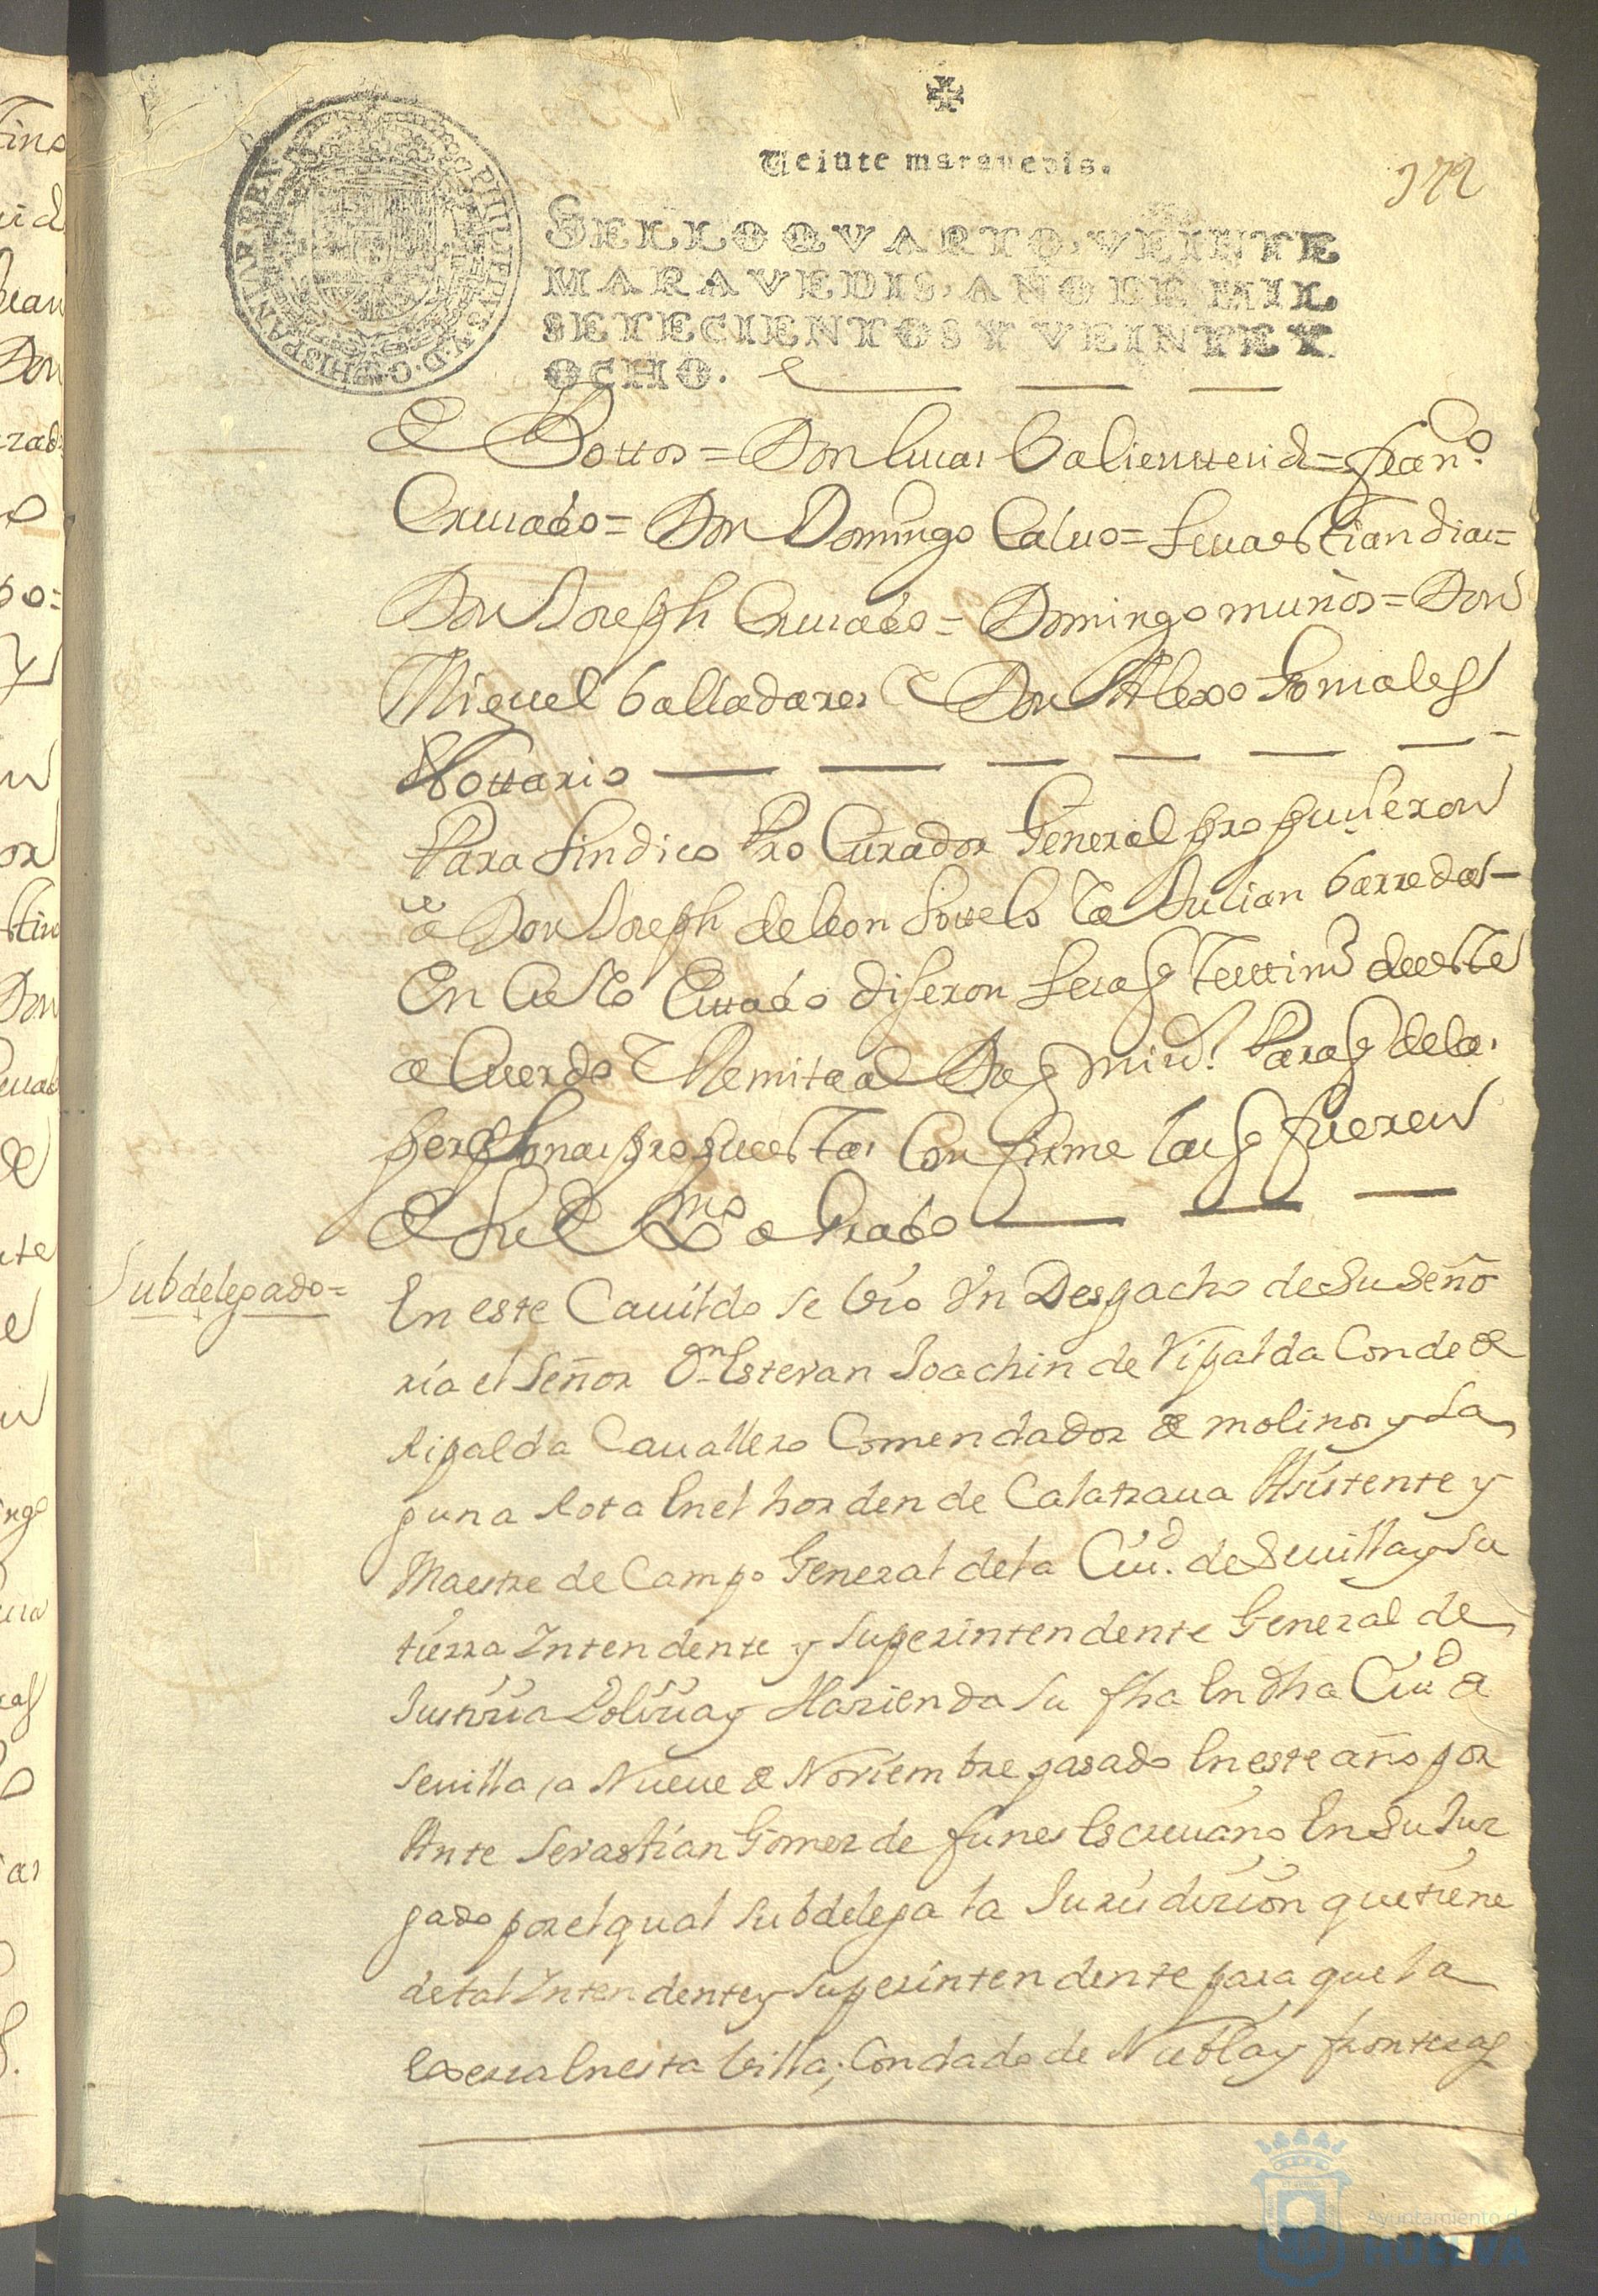 172
Veinte maravedis.
SELLO QVARTO, VEINTE
MARAVEDIS, AÑO DE MIL
SETECIENTOS Y VEINTE Y
OCHO.
PHILIPPUS V D G HISPANIAR REX
Bottos = Don lucas balientte vidl = fran.co
Cruzado = Don Domingo Calvo = Sevastian dias =
Don Joseph Cruzado = Domingo muños = Don
Miguel balladares e Don Alexo Gonzales
Nottario
Para Sindico Pro Curador General propusieron
a Don Joseph de leon Sottelo Ya Julian barredas
En Cuio Esttado dijeron se saq testtim.o de este
a Cuerdo e Remita al Dq mi s.r Para q de las
perssonas propuestas Confirme las q fueren
de su Ex.mo agrado
Subdelegado =
En este Cauildo se bio Un Despacho de Su Seño
ria el Señor D.n Estevan Joachin de Ripalda Conde de
Ripalda Cavallero Comendador de molinos y La
guna Rota En el horden de Calatraua Asistente y
Maestre de Campo General de la Ciu.d de Sevilla y Su
tierra Intendente y Superintendente General de
Justizia Polizia y Hazienda Su fha En dha Ciu.d de
Sevilla a Nueve de Noviembre pasado En este año por
Ante Sevastian Gomez de funes Escriuano En Su Juz
gado por el qual Subdelega la Jurisdizion que tiene
de tal Intendente y Superintendente para que la
Exerza En esta Villa, Condado de Niebla y fronteras
Ayuntamiento de
HUELVA